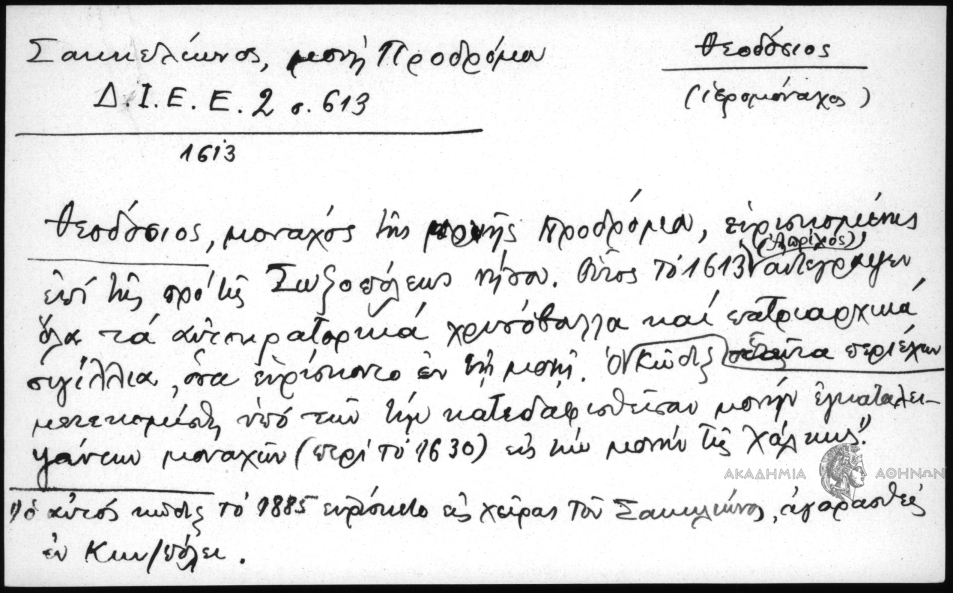 Σακκελίωνος, μονή Προδρόμου
Θεοδόσιος
(ἱερομόναχος)
Δ.Ι.Ε.Ε. 2 σ. 613
1613
Θεοδόσιος, μοναχός τῆς μονῆς Προδρόμου, εὑρισκομένης
ἐπί τῆς πρό τῆς Σωζοπόλεως νήσου. Οὗτος τό 1613 ἀντέγραψεν
ὅλα τά αὐτοκρατορικά χρυσόβουλλα καί πατριαρχικά
σιγίλλια, ὅσα εὑρίσκοντο ἐν τῇ μονῇ. Ὁ Κῶδιξ ταῦτα περιέχων
μετεκομίσθη ὑπό τῶν τήν κατεδαφισθεῖσαν μονήν ἐγκαταλει-
ψάντων μοναχῶν (περί τό 1630) εἰς τήν μονήν τῆς Χάλκης.
ΑΚΑΔΗΜΙΑ ΑΘΗΝΩΝ
1) ὁ αὐτός κῶδιξ τό 1885 εὑρίσκετο εἰς χεῖρας τοῦ Σακκελίωνος, ἀγορασθείς
ἐν Κων/πόλει.